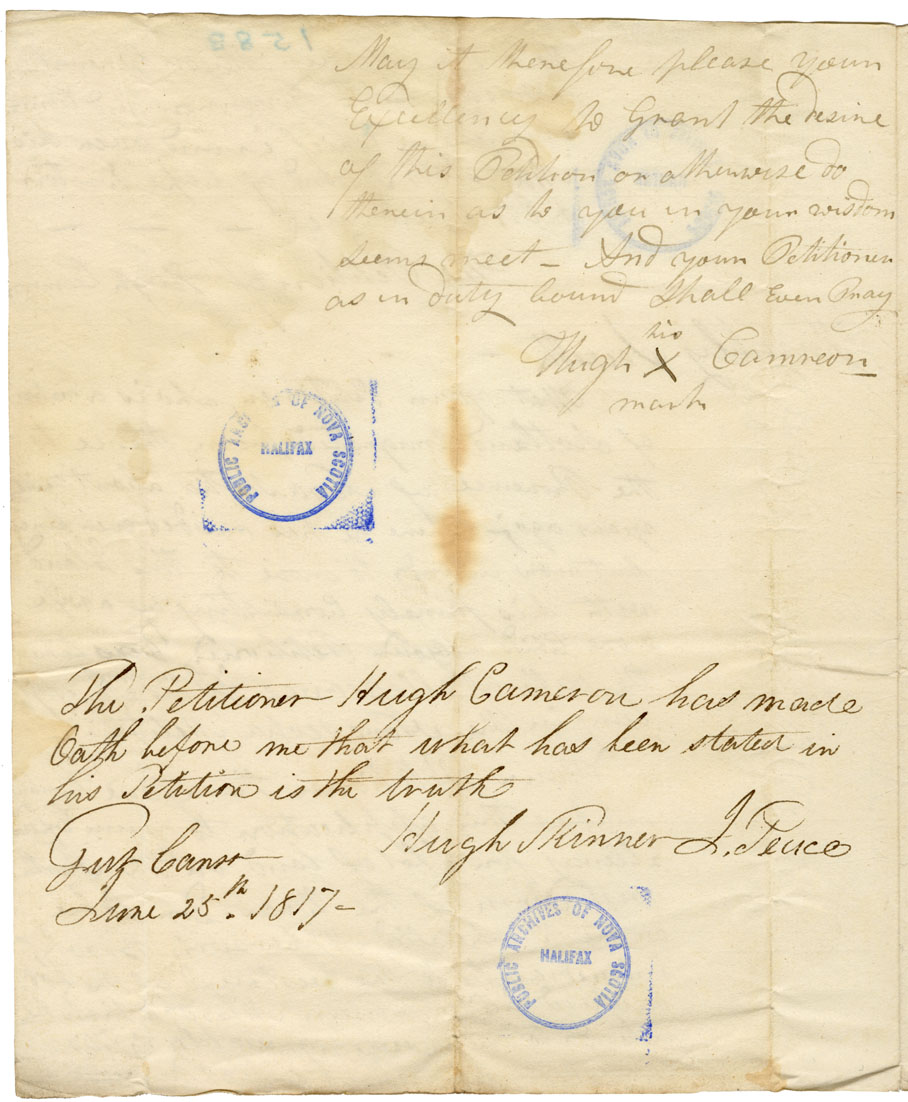 1588
May it therefore please your
Excellency to Grant the desire
of this Petition or otherwise do
therein as to you in your wisdom
seems meet – And your Petitioner
as in duty bound Shall Ever Pray
his
Hugh X Camreon
mark
PUBLIC ARCHIVES OF NOVA SCOTIA
HALIFAX
The Petitioner Hugh Cameron has made
Oath before me that what has been stated in
his Petition is the truth
Hugh Skinner J. Peace
Gut Canso
June 25th. 1817–
PUBLIC ARCHIVES OF NOVA SCOTIA
HALIFAX